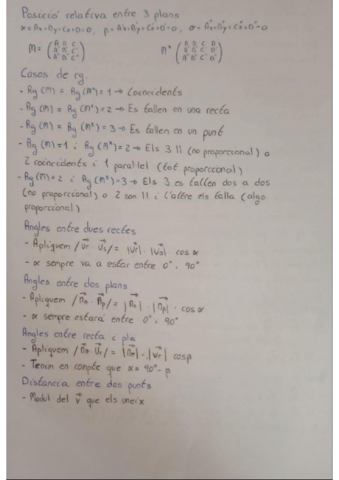 Posició relativa entre 3 plans
α = Ax+By+Cz+D=0, β = A'x+B'y+C'z+D'=0, σ = A''x+B''y+C''z+D''=0
M = (A B C / A' B' C' / A'' B'' C'') M* (A B C D / A' B' C' D' / A'' B'' C'' D'')
Casos de rg.
- Rg (M) = Rg (M*) = 1 → Coincidents
- Rg (M) = Rg (M*) = 2 → Es tallen en una recta
- Rg (M) = Rg (M*) = 3 → Es tallen en un punt
- Rg (M) = 1 i Rg (M*) = 2 → Els 3 || (no proporcional) o
2 coincidents i 1 paral·lel (tot proporcional)
- Rg (M) = 2 i Rg (M*) = 3 → Els 3 es tallen dos a dos
(no proporcional) o 2 son || i l'altre els talla (algo
proporcional)
Angles entre dues rectes
- Apliquem |Vr · Vs| = |Vr| · |Vs| · cos α
- α sempre va a estar entre 0° i 90°
Angles entre dos plans
- Apliquem |nα · nβ| = |nα| · |nβ| · cos α
- α sempre estará entre 0° i 90°
Angles entre recta i pla
- Apliquem |nα · Vr| = |nα| · |Vr| cos β
- Tenin en conpte que α = 90° - β
Distancia entre dos punts
- Modul del v que els uneix